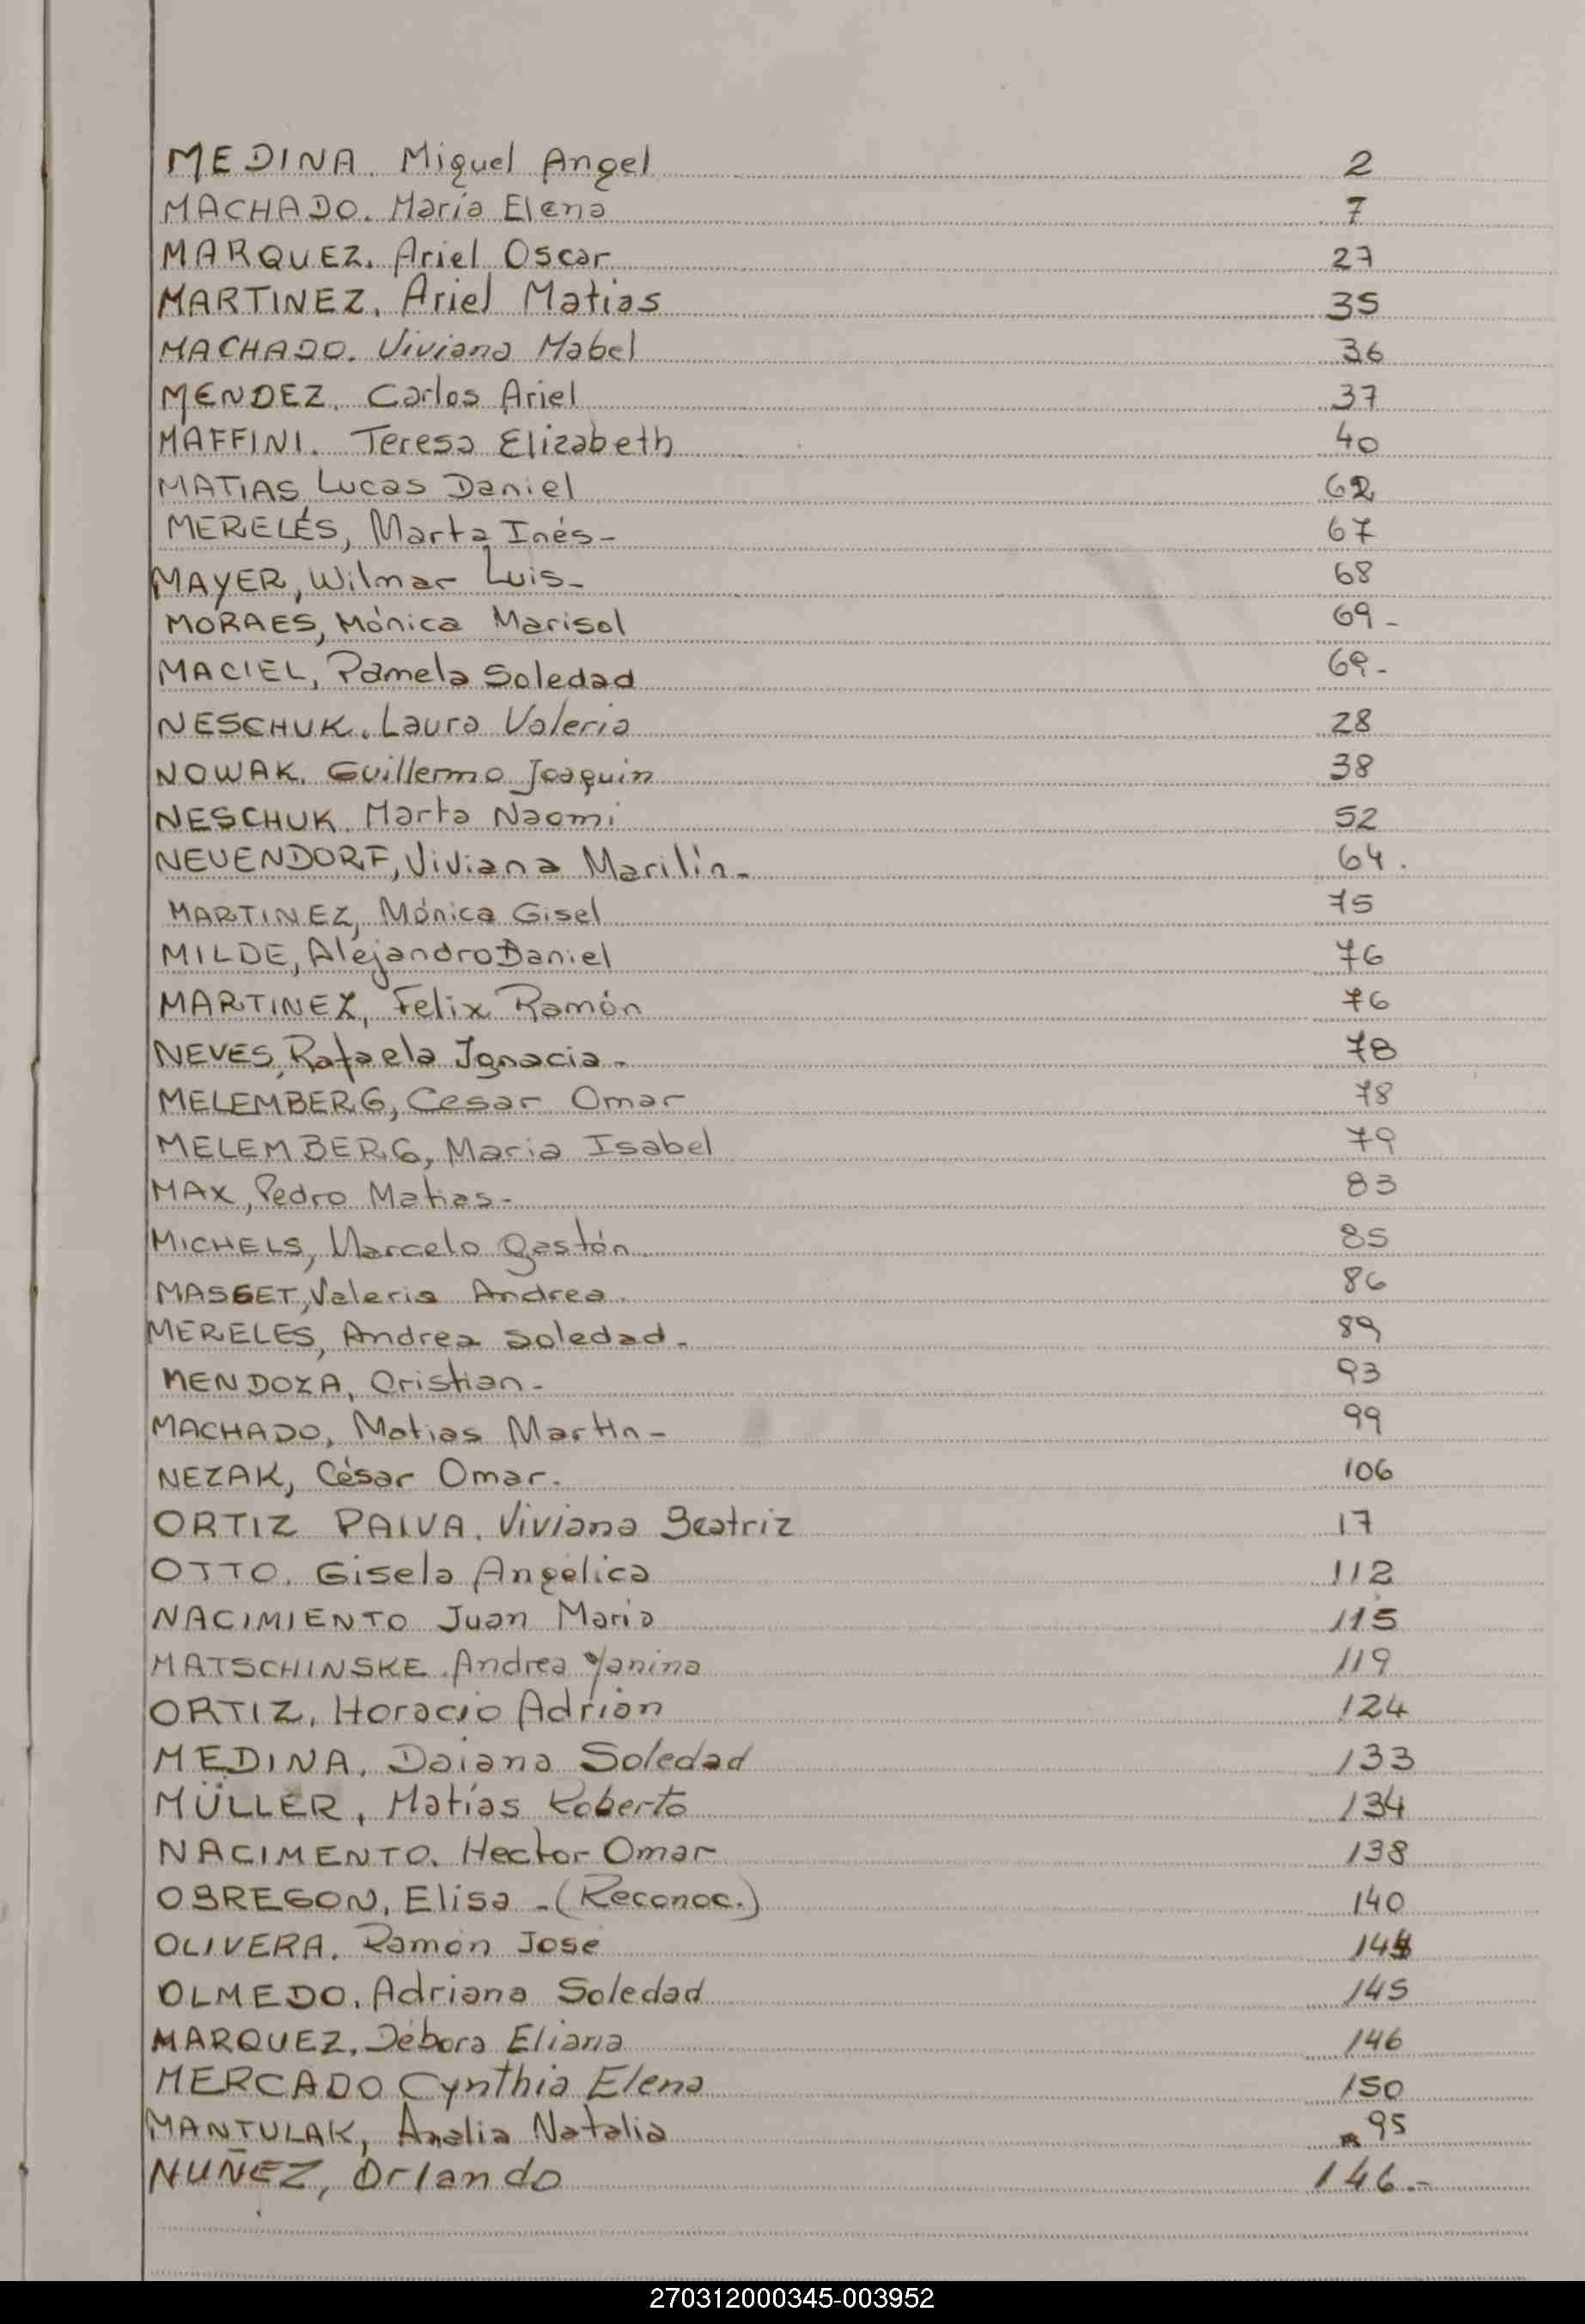 MEDINA. Miguel Angel 2
MACHADO. Maria Elena 7
MARQUEZ. Ariel Oscar 27
MARTINEZ. Ariel Matias 35
MACHADO. Viviana Mabel 36
MENDEZ. Carlos Ariel 37
MAFFINI. Teresa Elizabeth 40
MATIAS Lucas Daniel 62
MERELÉS, Marta Inés- 67
MAYER, Wilmar Luis- 68
MORAES, Mónica Marisol 69-
MACIEL, Pamela Soledad 69-
NESCHUK. Laura Valeria 28
NOWAK. Guillermo Joaquin 38
NESCHUK. Marta Naomi 52
NEUENDORF, Viviana Marilín- 64.
MARTINEZ, Mónica Gisel 75
MILDE, Alejandro Daniel 76
MARTINEZ, Felix Ramón 76
NEVES, Rafaela Ignacia- 78
MELEMBERG, Cesar Omar 78
MELEMBERG, Maria Isabel 79
MAX, Pedro Matias- 83
MICHELS, Marcelo Gastón 85
MASSET, Valeria Andrea. 86
MERELES, Andrea Soledad- 89
MENDOZA, Cristian- 93
MACHADO, Matias Martin- 99
NEZAK, César Omar. 106
ORTIZ PAIVA. Viviana Beatriz 17
OTTO. Gisela Angélica 112
NACIMIENTO Juan Maria 115
MATSCHINSKE. Andrea Yanina 119
ORTIZ. Horacio Adrián 124
MEDINA. Daiana Soledad 133
MÜLLER, Matías Roberto 134
NACIMENTO. Hector Omar 138
OBREGON, Elisa -(Reconoc.) 140
OLIVERA. Ramón José
OLMEDO. Adriana Soledad 145
MARQUEZ. Débora Eliana 146
MERCADO Cynthia Elena 150
MANTULAK, Analia Natalia 95
NUÑEZ, Orlando 146.-
270312000345-003952